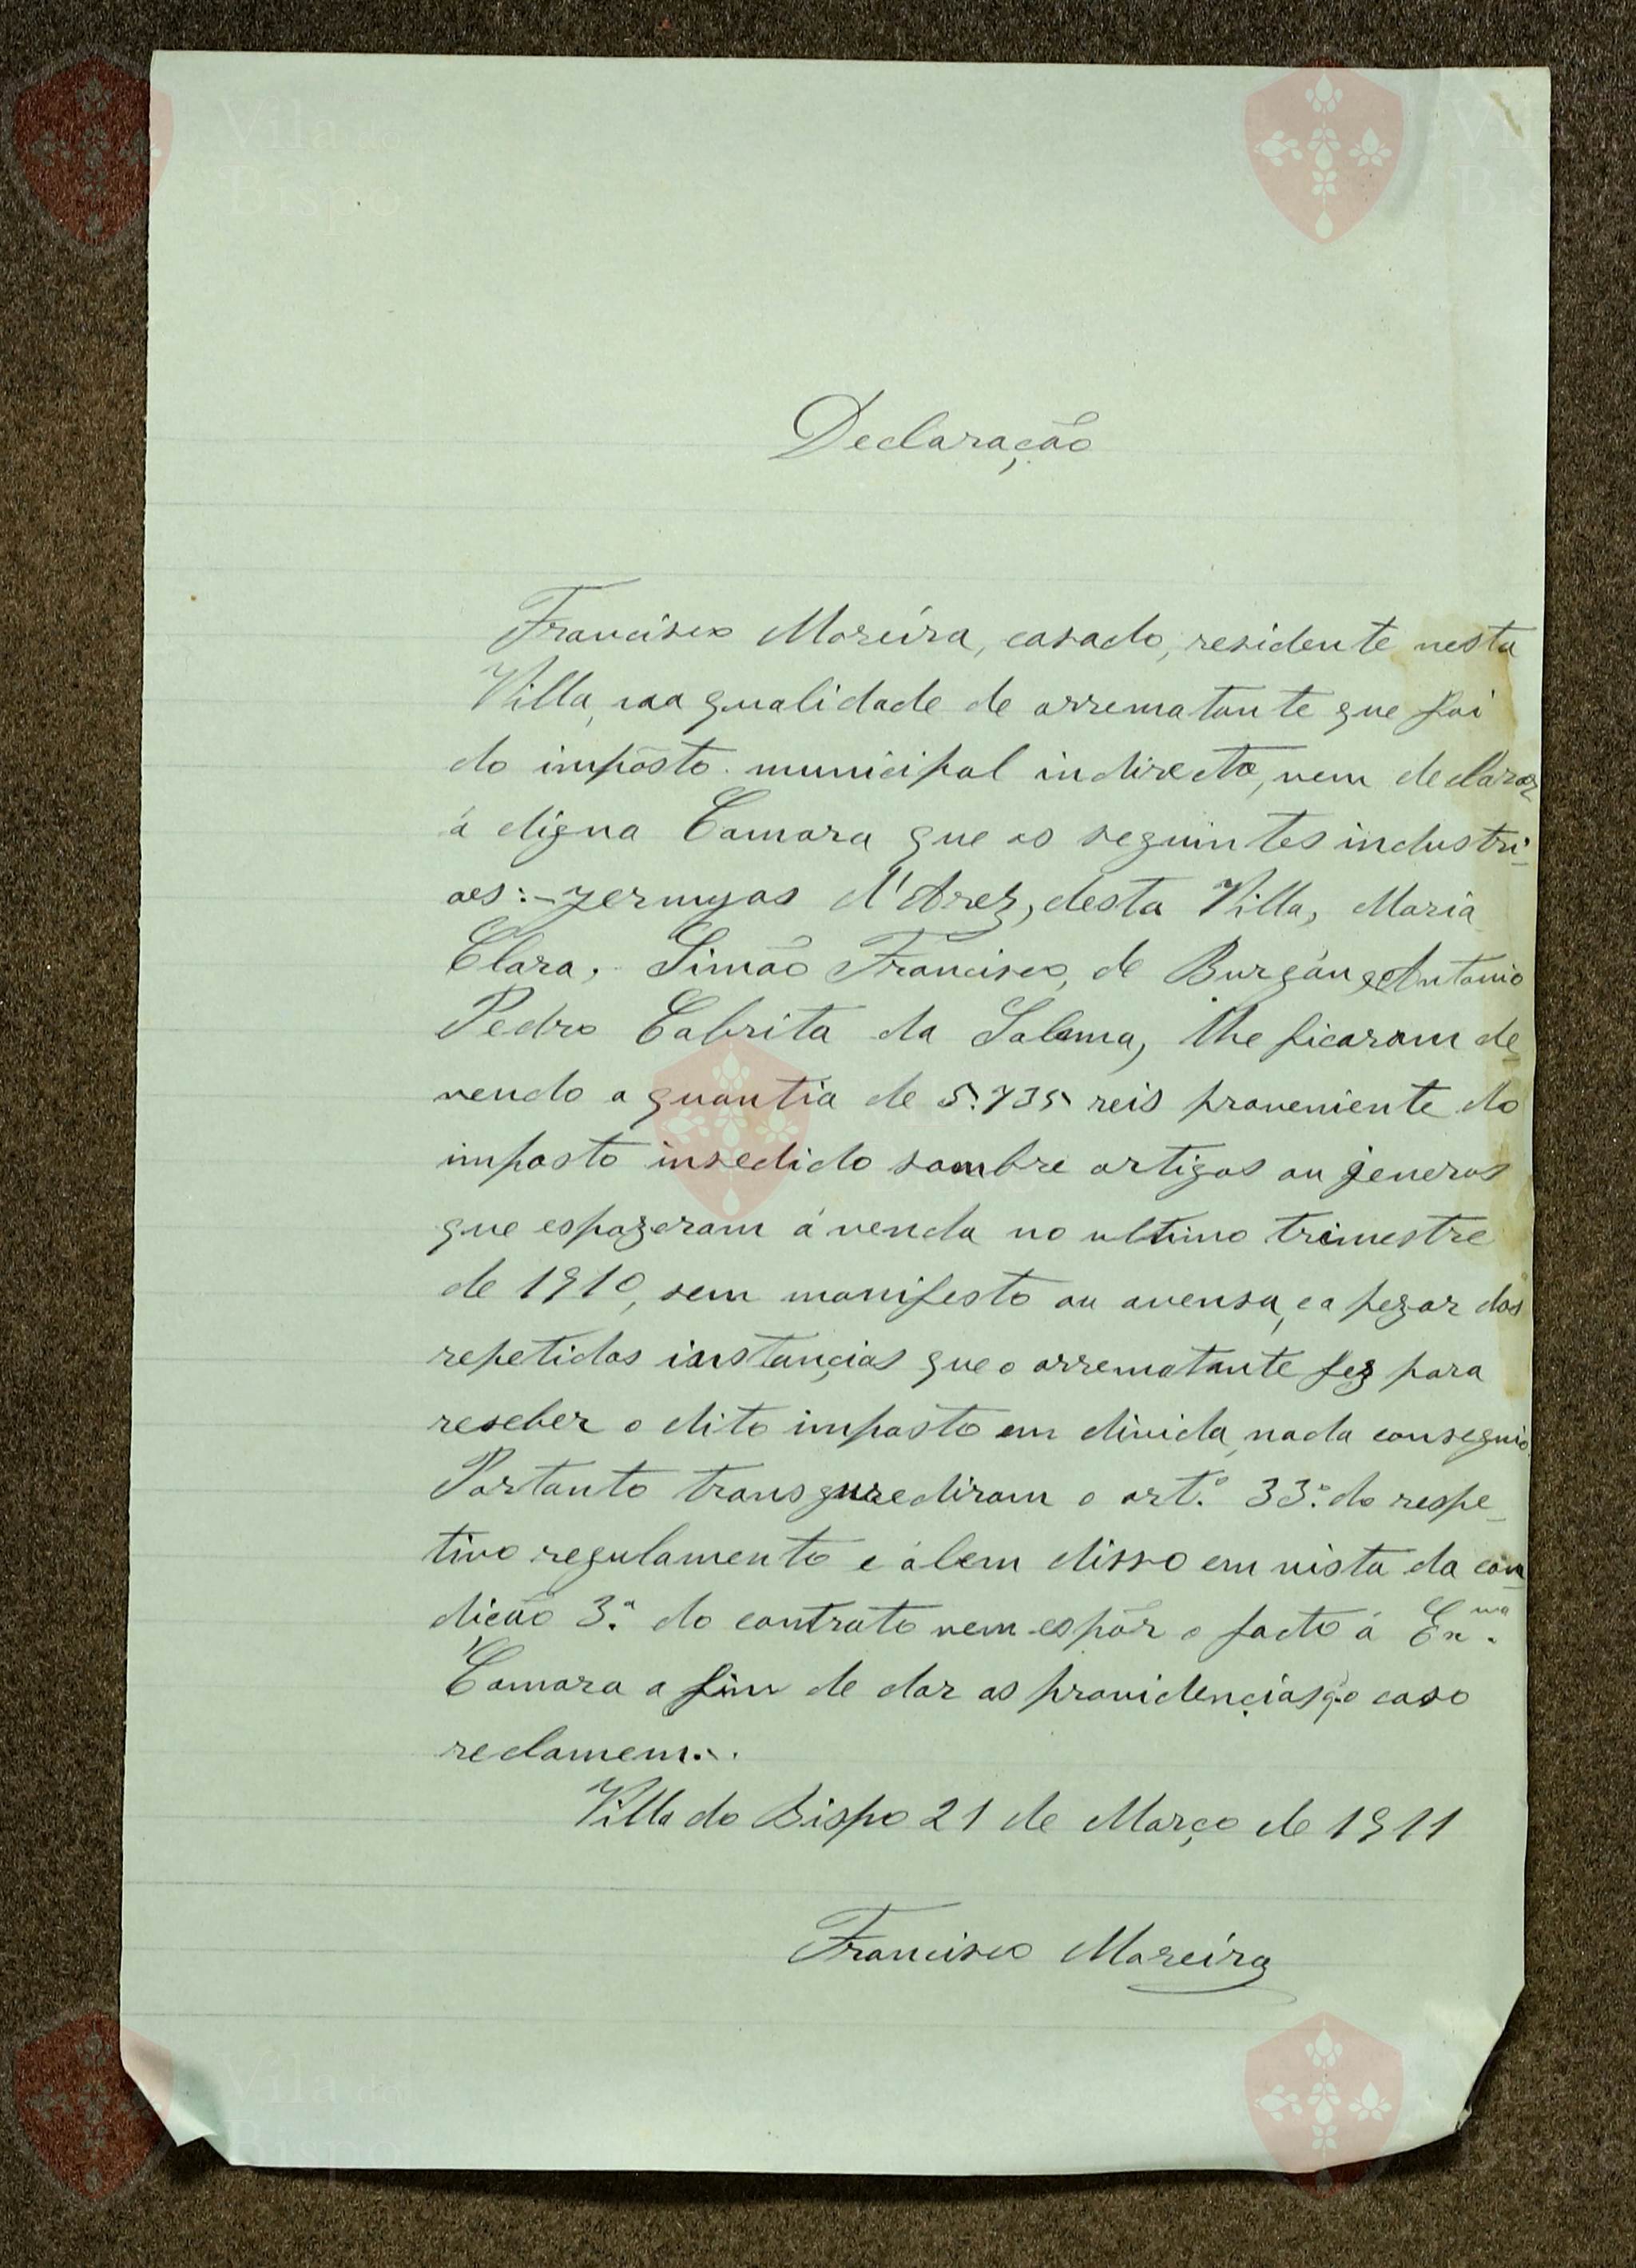 Declaração
Francisco Moreira, casado, residente nesta
Villa, na qualidade de arrematante que foi
do impôsto municipal indirecto, vem declarar
á digna Camara que os seguintes industri-
aes:- Jermyas d'Arez, desta Villa, Maria
Clara, Simão Francisco, de Burgáu, e Antonio
Pedro Cabrita da Salema, lhe ficaram de-
vendo a quantia de 5.735 reis proveniente do
imposto insedido sombre artigos ou jeneros
que espozeram á venda no ultimo trimestre
de 1910, sem manifesto ou avensa, e a pezar das
repetidas instançias que o arrematante fez para
reseber o dito imposto em divida, nada conseguio.
Portanto transgurediram o art.º 33.º do respe-
tivo regulamento e álem disso em vista da con-
dição 3.ª do contrato vem espôr o facto á Ex.ma
Camara a fim de dar as providençias q.e o caso
reclamem...
Villa do Bispo 21 de Março de 1911
Francisco Moreira
Vila do
Bispo
Vila do
Bispo